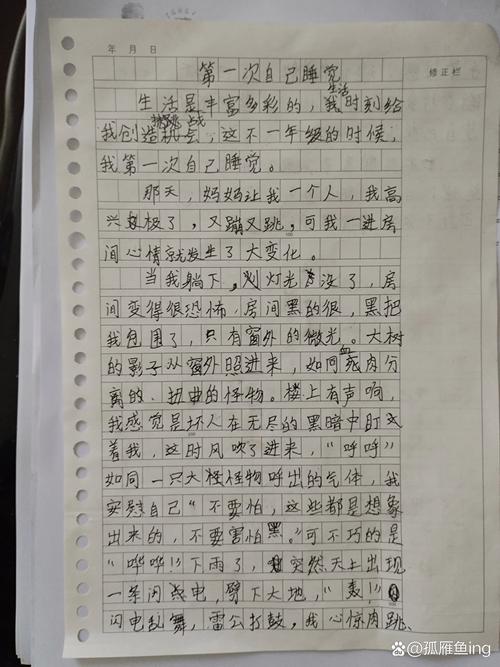 年 月 日
修正栏
第一次自己睡觉
生活是丰富多彩的，生活时刻给
我创造挑战机会，这不一年级的时候，
我第一次自己睡觉。
那天，妈妈让我一个人，我高
兴极了，又蹦又跳，可我一进房
间心情就发生了大变化。
当我躺下，灯光没了，房
间变得很恐怖，房间黑的很，黑把
我包围了，只有窗外的微光。大树
的影子从窗外照进来，如同血肉分
离的、扭曲的怪物。楼上有声响，
我感觉是坏人在无尽的黑暗中盯
着我，这时风吹了进来，“呼呼”
如同一只大怪物呼出的气体，我
安慰自己“不要怕，这些都是想象
出来的，不要害怕黑。”可不巧的是
“哗哗!!”下雨了，突然天上出现
一条闪电，劈下大地，“轰!!”
闪电乱舞，雷公打鼓，我心惊肉跳
@孤雁鱼ing